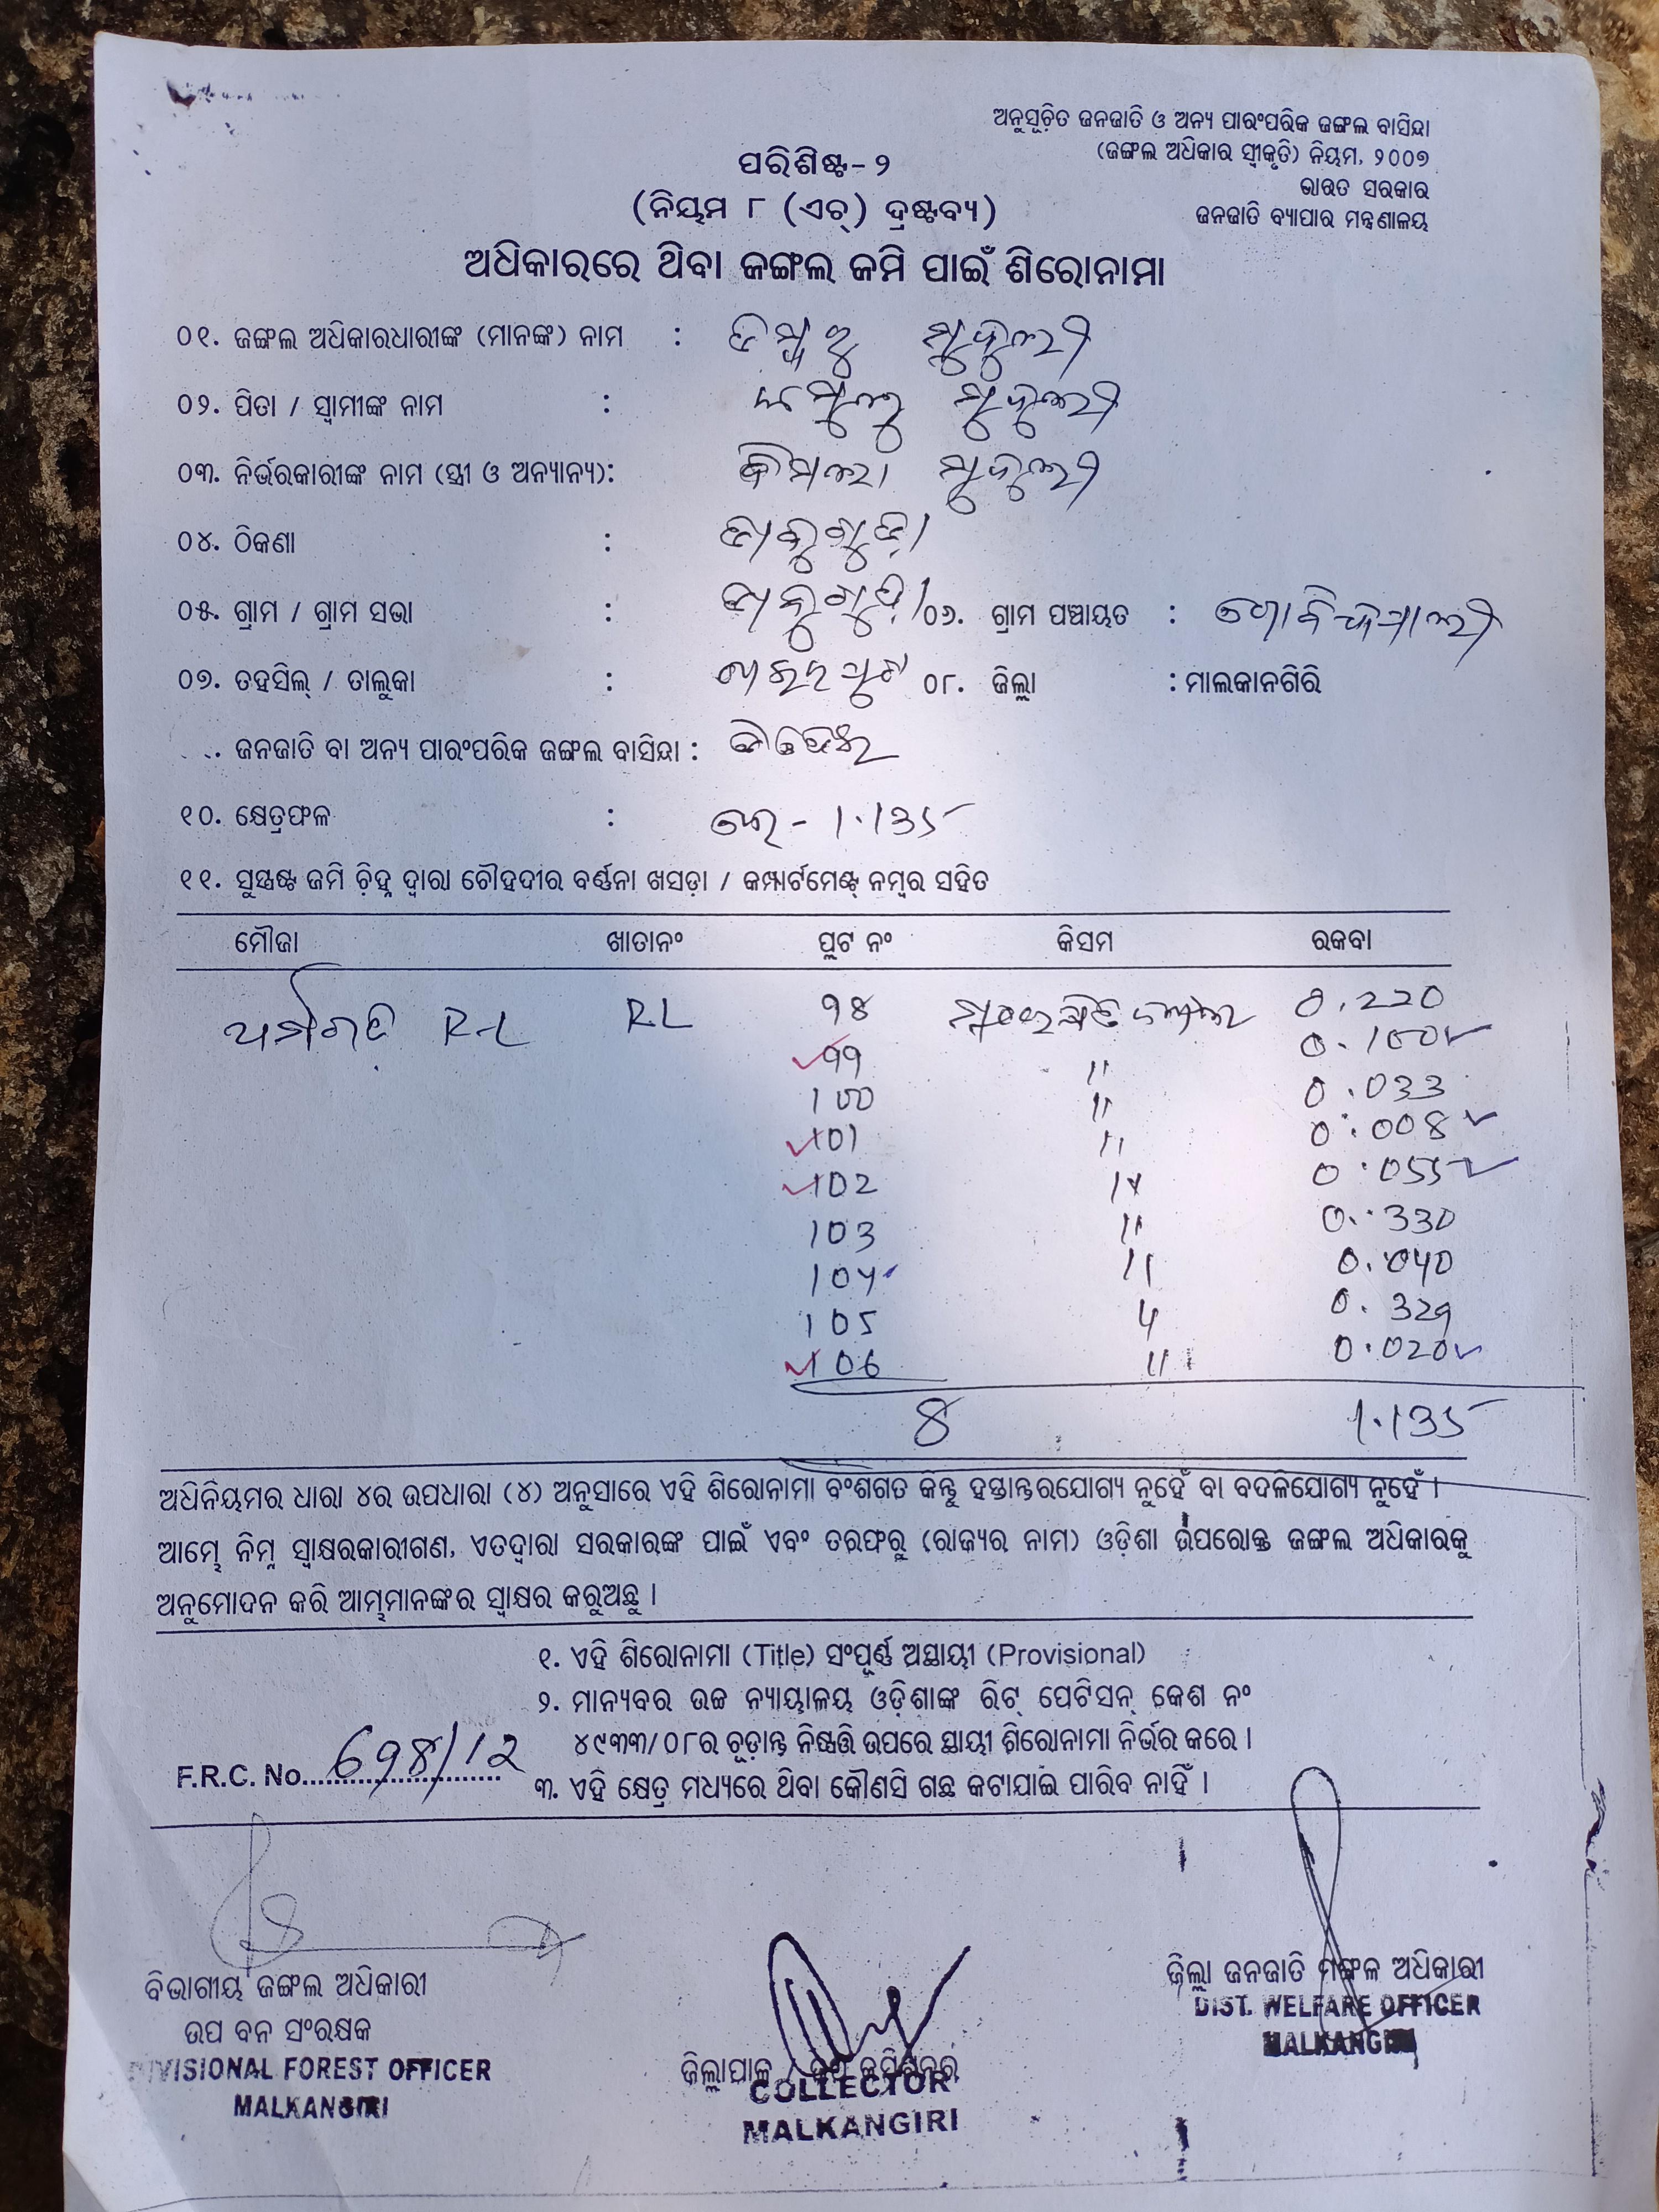 ଅନୁସୂଚିତ ଜନଜାତି ଓ ଅନ୍ୟ ପାରଂପରିକ ଜଙ୍ଗଲ ବାସିନ୍ଦା
(ଜଙ୍ଗଲ ଅଧିକାର ସ୍ୱୀକୃତି) ନିୟମ, ୨୦୦୭
ଭାରତ ସରକାର
ଜନଜାତି ବ୍ୟାପାର ମନ୍ତ୍ରଣାଳୟ
ପରିଶିଷ୍ଟ-୨
(ନିୟମ ୮ (ଏଚ୍) ଦ୍ରଷ୍ଟବ୍ୟ)
ଅଧିକାରରେ ଥିବା ଜଙ୍ଗଲ ଜମି ପାଇଁ ଶିରୋନାମା
୦୧. ଜଙ୍ଗଲ ଅଧିକାରଧାରୀଙ୍କ (ମାନଙ୍କ) ନାମ : ମୁଦୁଲୀ
୦୨. ପିତା / ସ୍ୱାମୀଙ୍କ ନାମ : ମୁଦୁଲୀ
୦୩. ନିର୍ଭରକାରୀଙ୍କ ନାମ (ସ୍ତ୍ରୀ ଓ ଅନ୍ୟାନ୍ୟ): ବିମଲା ମୁଦୁଲୀ
୦୪. ଠିକଣା :
୦୫. ଗ୍ରାମ / ଗ୍ରାମ ସଭା : ୦୬. ଗ୍ରାମ ପଞ୍ଚାୟତ : ଗୋବିନ୍ଦପାଲୀ
୦୭. ତହସିଲ୍ / ତାଲୁକା : ଖଇରପୁଟ ୦୮. ଜିଲ୍ଲା : ମାଲକାନଗିରି
ଜନଜାତି ବା ଅନ୍ୟ ପାରଂପରିକ ଜଙ୍ଗଲ ବାସିନ୍ଦା :
୧୦. କ୍ଷେତ୍ରଫଳ : ହେ - 1.135
୧୧. ସୁସ୍ପଷ୍ଟ ଜମି ଚିହ୍ନ ଦ୍ୱାରା ଚୌହଦୀର ବର୍ଣ୍ଣନା ଖସଡ଼ା / କମ୍ପାର୍ଟମେଣ୍ଟ୍ ନମ୍ବର ସହିତ
ମୌଜା ଖାତାନଂ ପ୍ଲଟ ନଂ କିସମ ରକବା
RL RL 98 0.220
99 " 0.100
100 " 0.033
101 " 0.008
102 " 0.055
103 " 0.330
104 " 0.040
105 " 0.329
106 " 0.020
8 1.135
ଅଧିନିୟମର ଧାରା ୪ର ଉପଧାରା (୪) ଅନୁସାରେ ଏହି ଶିରୋନାମା ବଂଶଗତ କିନ୍ତୁ ହସ୍ତାନ୍ତରଯୋଗ୍ୟ ନୁହେଁ ବା ବଦଳିଯୋଗ୍ୟ ନୁହେଁ ।
ଆମ୍ଭେ ନିମ୍ନ ସ୍ୱାକ୍ଷରକାରୀଗଣ, ଏତଦ୍ୱାରା ସରକାରଙ୍କ ପାଇଁ ଏବଂ ତରଫରୁ (ରାଜ୍ୟର ନାମ) ଓଡ଼ିଶା ଉପରୋକ୍ତ ଜଙ୍ଗଲ ଅଧିକାରକୁ
ଅନୁମୋଦନ କରି ଆମ୍ଭମାନଙ୍କର ସ୍ୱାକ୍ଷର କରୁଅଛୁ ।
୧. ଏହି ଶିରୋନାମା (Title) ସଂପୂର୍ଣ୍ଣ ଅସ୍ଥାୟୀ (Provisional)
୨. ମାନ୍ୟବର ଉଚ୍ଚ ନ୍ୟାୟାଳୟ ଓଡ଼ିଶାଙ୍କ ରିଟ୍ ପେଟିସନ୍ କେଶ ନଂ
୪୯୩୩/୦୮ର ଚୂଡ଼ାନ୍ତ ନିଷ୍ପତ୍ତି ଉପରେ ସ୍ଥାୟୀ ଶିରୋନାମା ନିର୍ଭର କରେ ।
F.R.C. No. 698/12
୩. ଏହି କ୍ଷେତ୍ର ମଧ୍ୟରେ ଥିବା କୌଣସି ଗଛ କଟାଯାଇ ପାରିବ ନାହିଁ ।
ବିଭାଗୀୟ ଜଙ୍ଗଲ ଅଧିକାରୀ
ଉପ ବନ ସଂରକ୍ଷକ
DIVISIONAL FOREST OFFICER
MALKANGIRI
ଜିଲ୍ଲାପାଳ /
COLLECTOR
MALKANGIRI
ଜିଲ୍ଲା ଜନଜାତି ମଙ୍ଗଳ ଅଧିକାରୀ
DIST. WELFARE OFFICER
MALKANGIRI